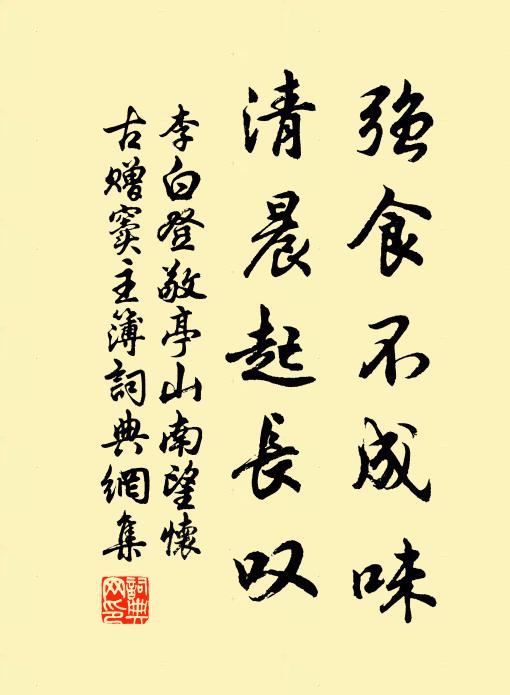 强食不成味
清晨起長叹
李白登敬亭山南望懷
古贈窦主簿詞典網集